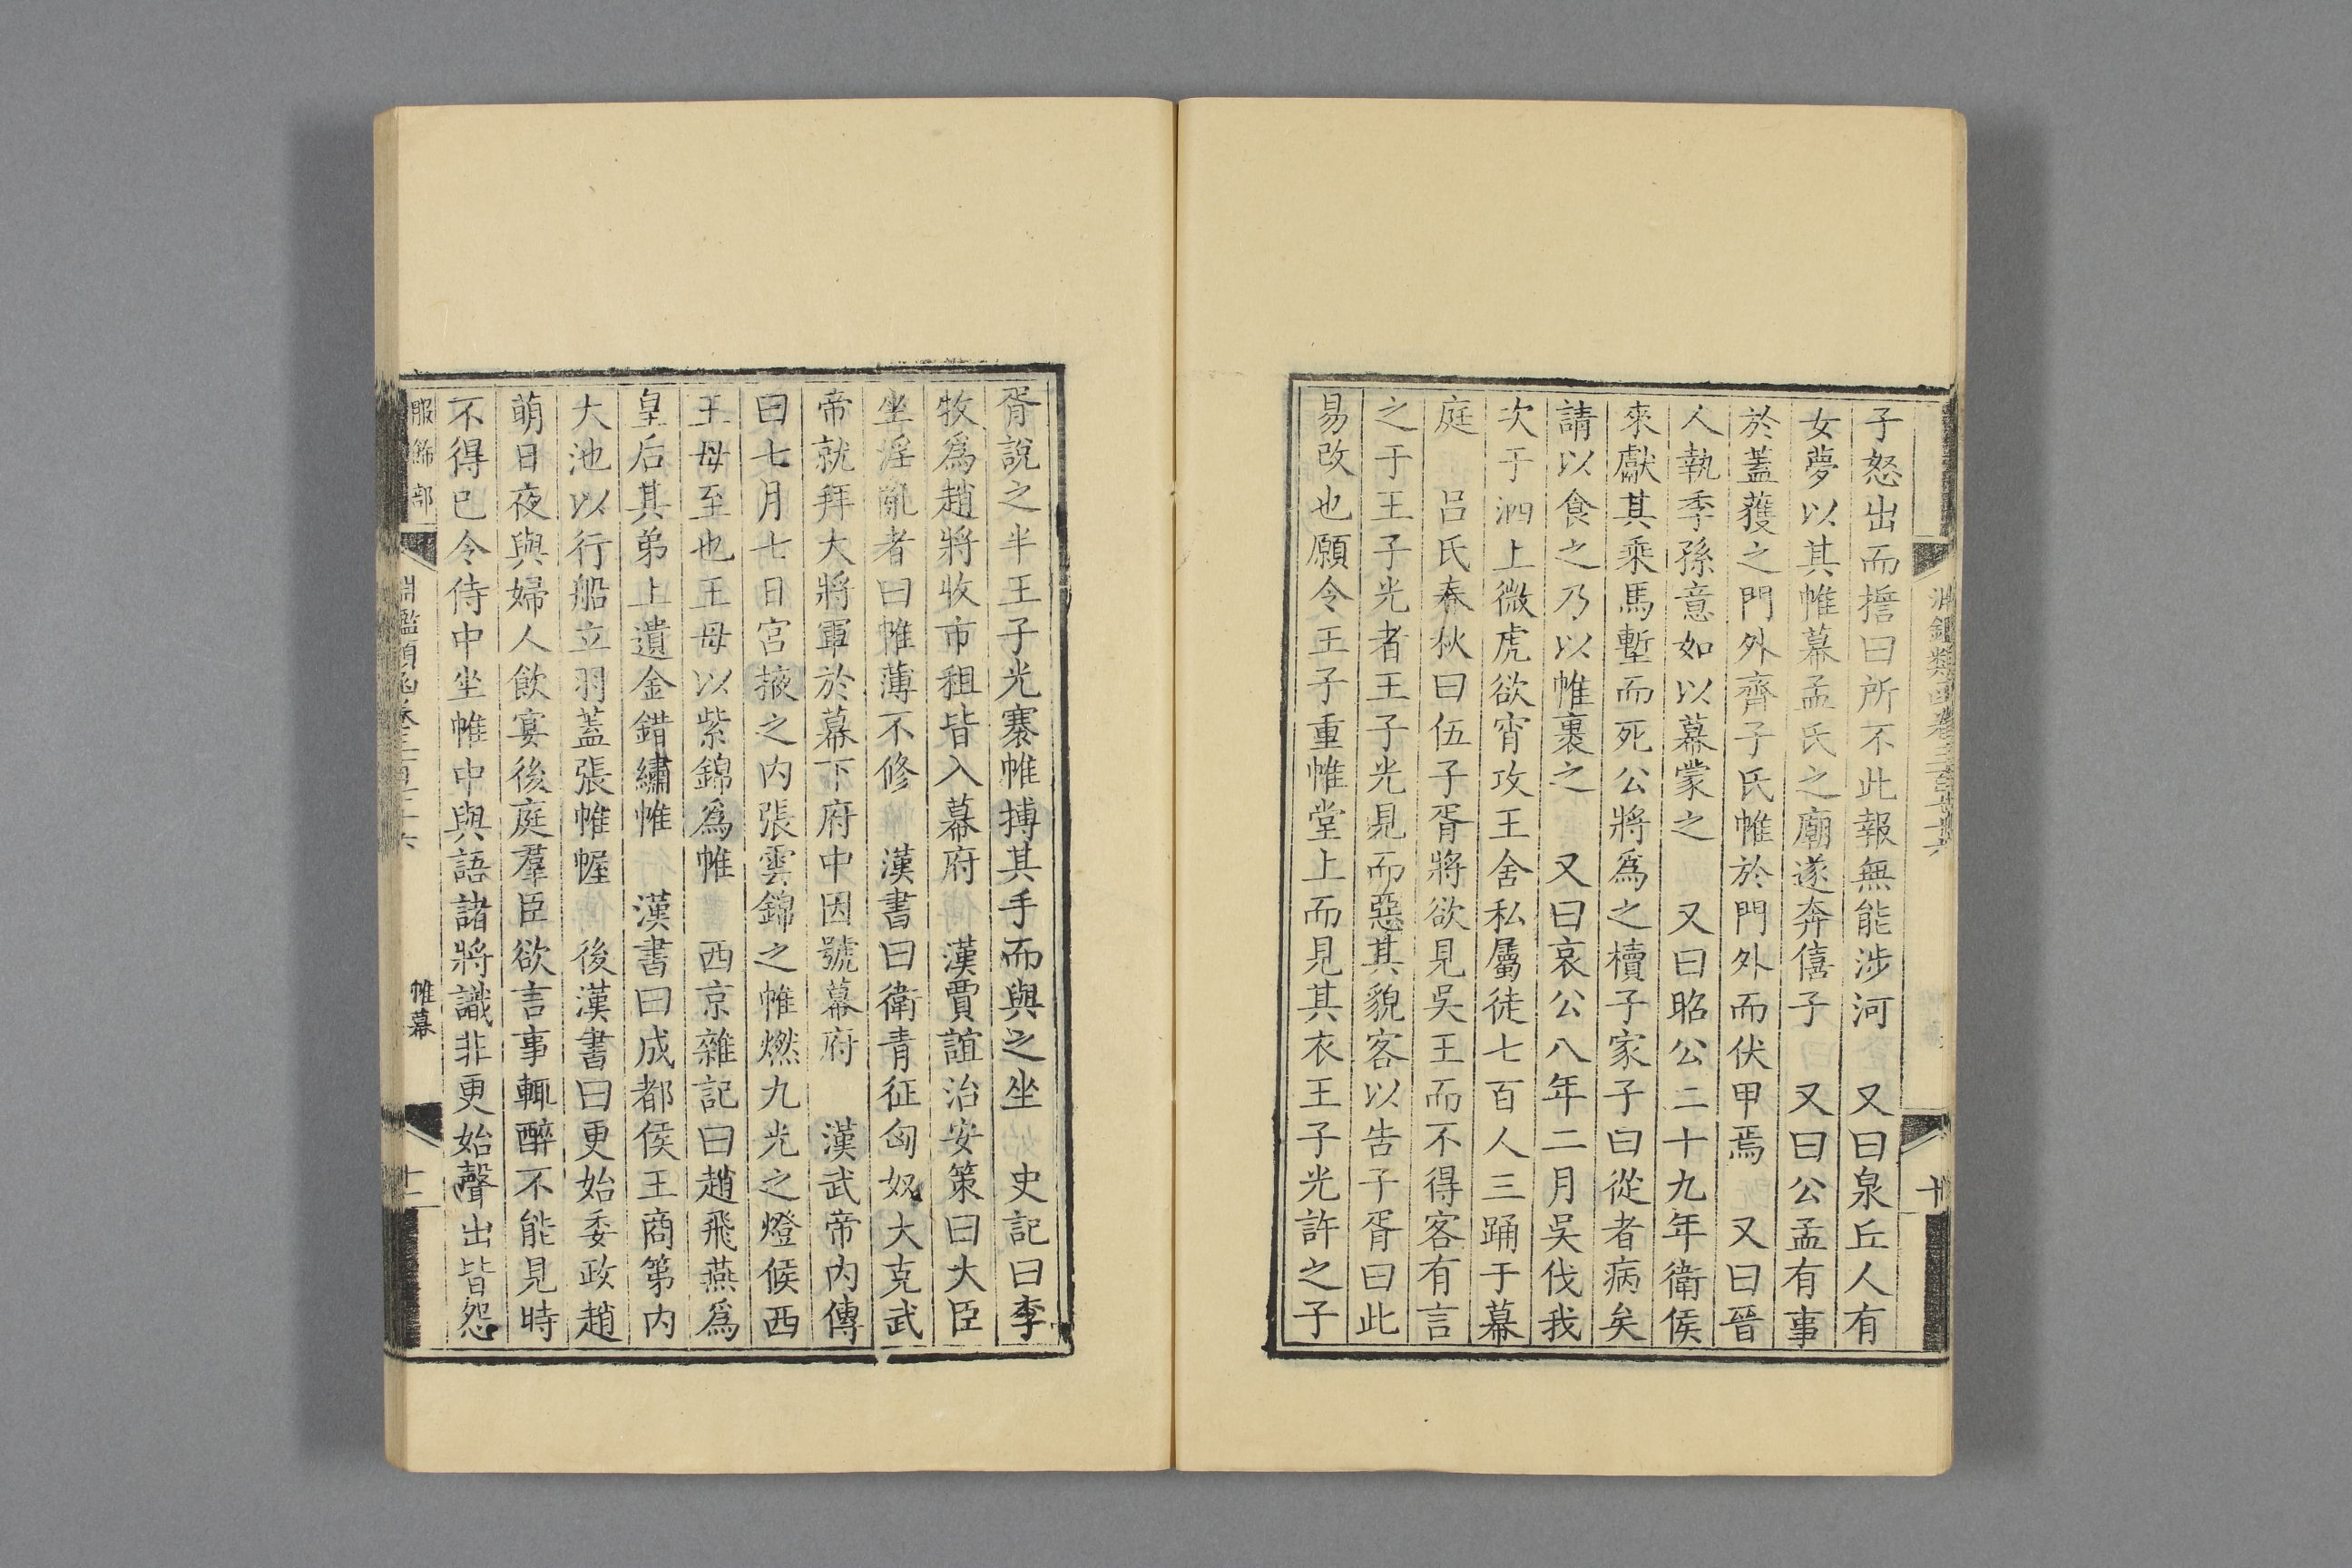 子怒出而擔曰所不此報無能涉河　又曰泉丘人有
女夢以其帷幕孟氏之廟遂奔僖子　又曰公孟有事
於蓋蒦之門外齊子氏帷於門外而伏甲焉　又曰晉
人執季孫意如以幕蒙之　又曰昭公二十九年衛侯
來獻其乘馬塹而死公將爲之櫝子家子曰從者病矣
請以食之乃以帷裹之　又曰哀公八年二月吳伐我
次于泗上微虎欲宵攻王舍私屬徒七百人三踊于幕
庭　呂氏春秋曰伍子胥將欲見吳王而不得客有言
之于王子光者王子光見而惡其貌客以告子胥曰此
易改也願令王子重帷堂上而見其衣王子光許之子
胥說之半王子光褰帷搏其手而與之坐　史記曰李
牧爲趙將收市租皆入幕府　漢賈誼治安策曰大臣
坐淫亂者曰帷薄不修　漢書曰衛青征匈奴大克武
帝就拜大將軍於幕下府中因號幕府　漢武帝內傳
曰七月七日宮掖之内張雲錦之帷燃九光之燈候西
王母至也王母以紫錦爲帷　西京雜記曰趙飛燕爲
皇后其弟上遺金錯繡帷　漢書曰成都侯王商第内
大池以行船立羽蓋張帷幄　後漢書曰更始委政趙
萌日夜與婦人飲宴後庭羣臣欲言事輒醉不能見時
不得已令侍中坐帷中與語諸將識非更始聲出皆怨
服飾部
淵鑑類函卷三百七十六
帷幕
十一